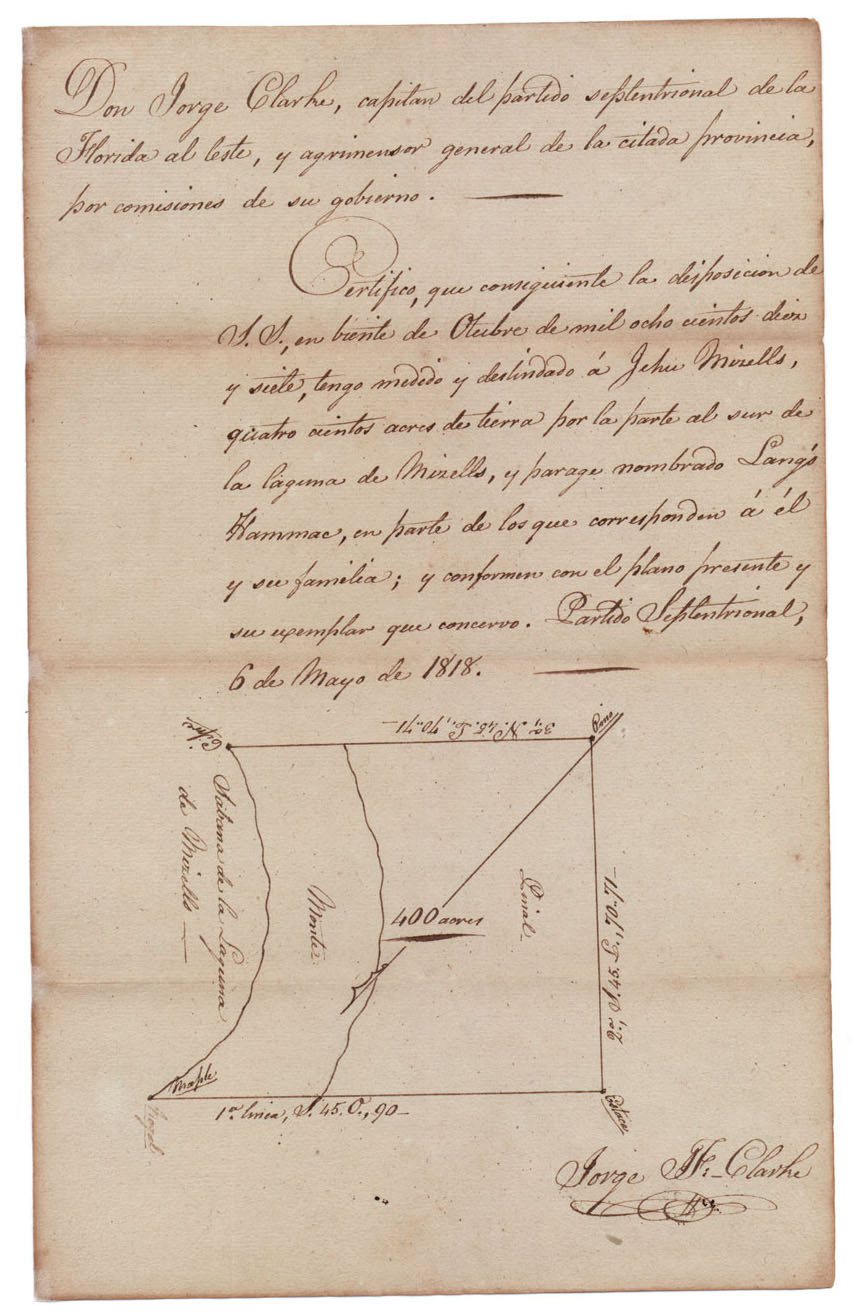 Don Jorge Clarke, capitan del partido septentrional de la
Florida al leste, y agrimensor general de la citada provincia,
por comisiones de su gobierno.
Certifico, que consiguiente la disposicion de
S. S., en biente de Otubre de mil ocho cientos diez
y siete, tengo medido y deslindado á Jehu Mizells,
quatro cientos acres de tierra por la parte al sur de
la laguna de Mizells, y parage nombrado Lang's
Hammac, en parte de los que corresponden á él
y su familia; y conformen con el plano presente y
su exemplar que concervo. Partido Septentrional,
6 de Mayo de 1818.
3a,, N. 45. E,, 70-71-
Pino
Sabana de la Laguna
de Mizells
Montes
400 acres
Pinal
2a,, S. 45. E,, 70-71-
Maple
1a. linea, S. 45. O., 90-
Estaca
Jorge J. F. Clarke